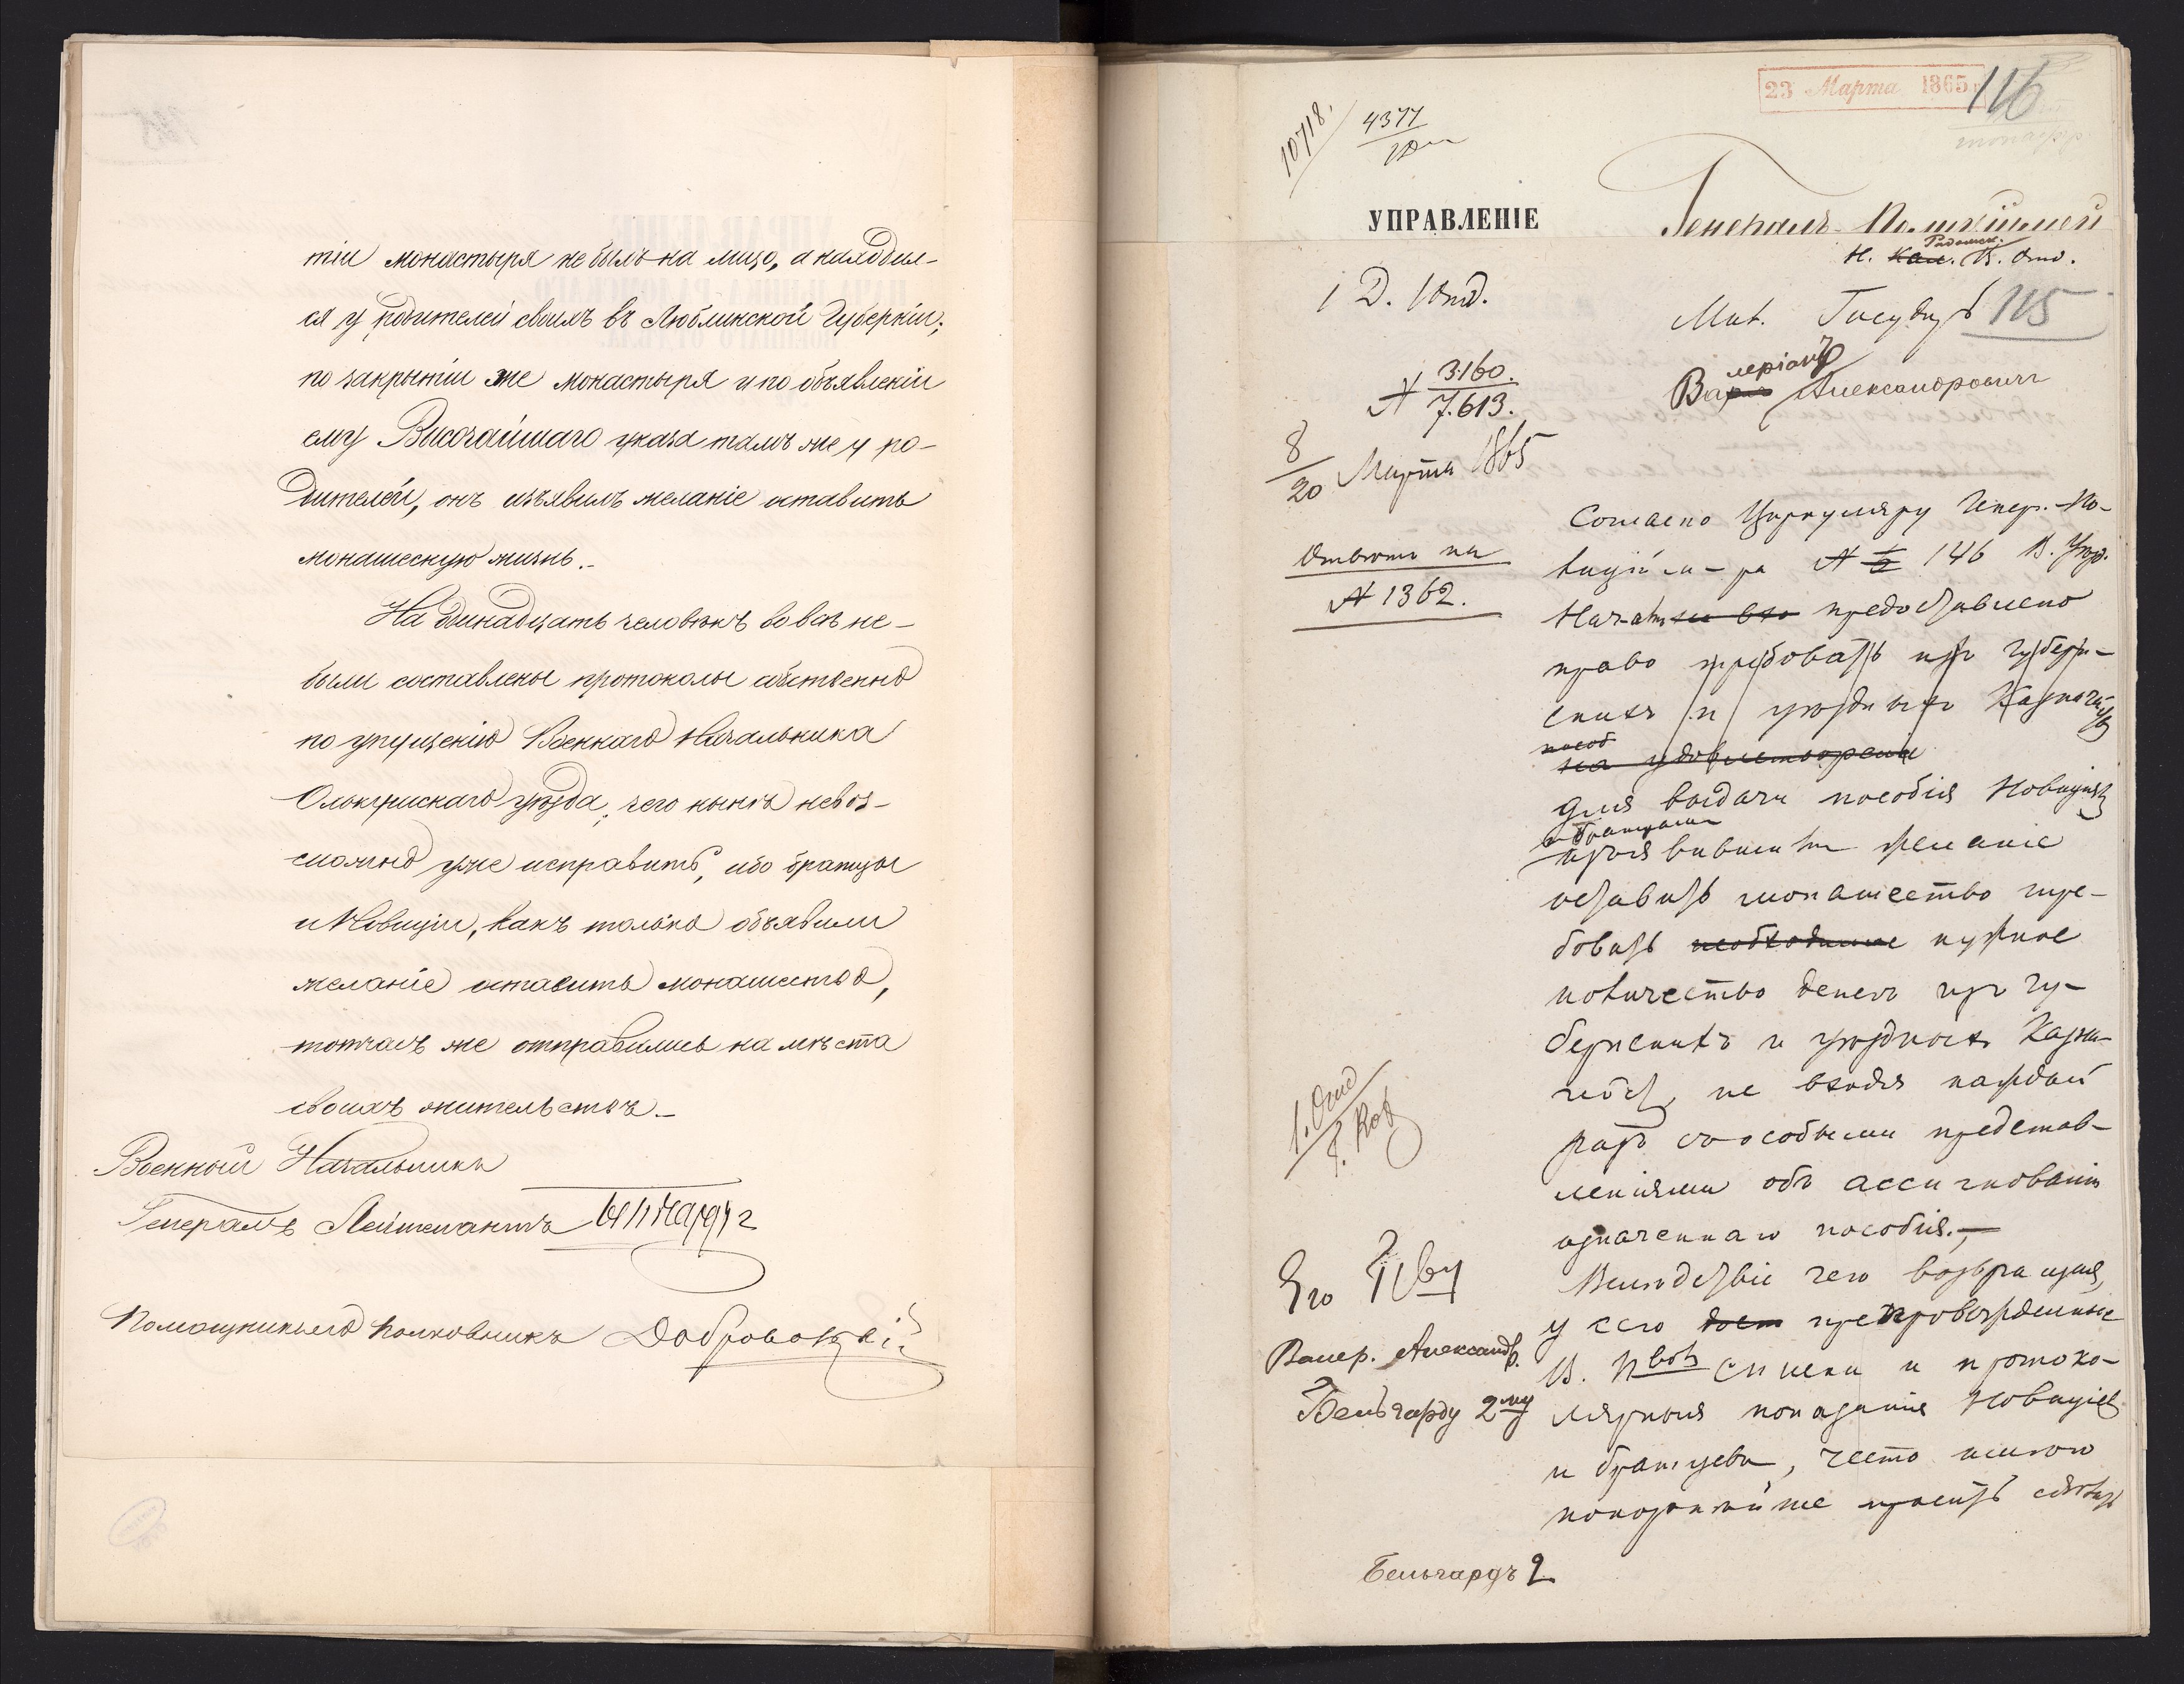 тіи монастыря не былъ на лицо, а находил-
ся у родителей своихъ въ Люблинской Губерніи;
по закрытіи же монастыря и по объявленіи
ему Высочайшаго указа тамъ же у ро-
дителей, онъ изъявилъ желаніе оставить
монашескую жизнь.-
На двенадцать человѣкъ вовсѣ не-
были составлены протоколы собственно
по упущенію Военнаго Начальника
Олькушскаго уѣзда, чего нынѣ невоз-
можно уже исправить, ибо братцы
и Новиціи, какъ только объявили
желаніе оставить монашество,
тотчасъ же отправились на мѣста
своихъ жительствъ.-
Военный Начальникъ
Генералъ Лейтенантъ Бельгардъ 2
Помощникъ его Полковникъ Добровольскій
23 Марта 1865 г.
116
10718.
4377
УПРАВЛЕНІЕ
Генералъ-Полиціймей
Радомск.
Н. Кал. В. Отд.
1 Д. 1 Отд.
Мил. Государь
115
леріанъ
Ва Александровичъ
N 3160.
7.613.
8
20 Марта 1865
Отвѣтъ на
N 1362.
Согласно Циркуляру Генер.-По-
лицій-м-ра N 146 В. Уѣзд.
Нач-амъ предоставлено
право требовать изъ губерн-
скихъ и уѣздныхъ Казначейств
на удовлетвореніе
для выдачи пособія Новиціямъ
и братцамъ
изъявившимъ желаніе
оставить монашество тре-
бовать необходимое нужное
количество денегъ изъ гу-
бернскихъ и уѣздныхъ Казна-
чейст, не входя каждый
разъ съ особыми представ-
леніями объ ассигнованіи
означеннаго пособія.-
Вслѣдствіе чего возвращая,
у сего препровожденные
В. Пвомъ списки и протоко-
лярныя показанія Новиціевъ
и братцевъ, честь имѣю
покорнѣйше просить сдѣлать
1. Отд
Его Пву
Валер. Александр.
Бельгарду 2му
Бельгардъ 2